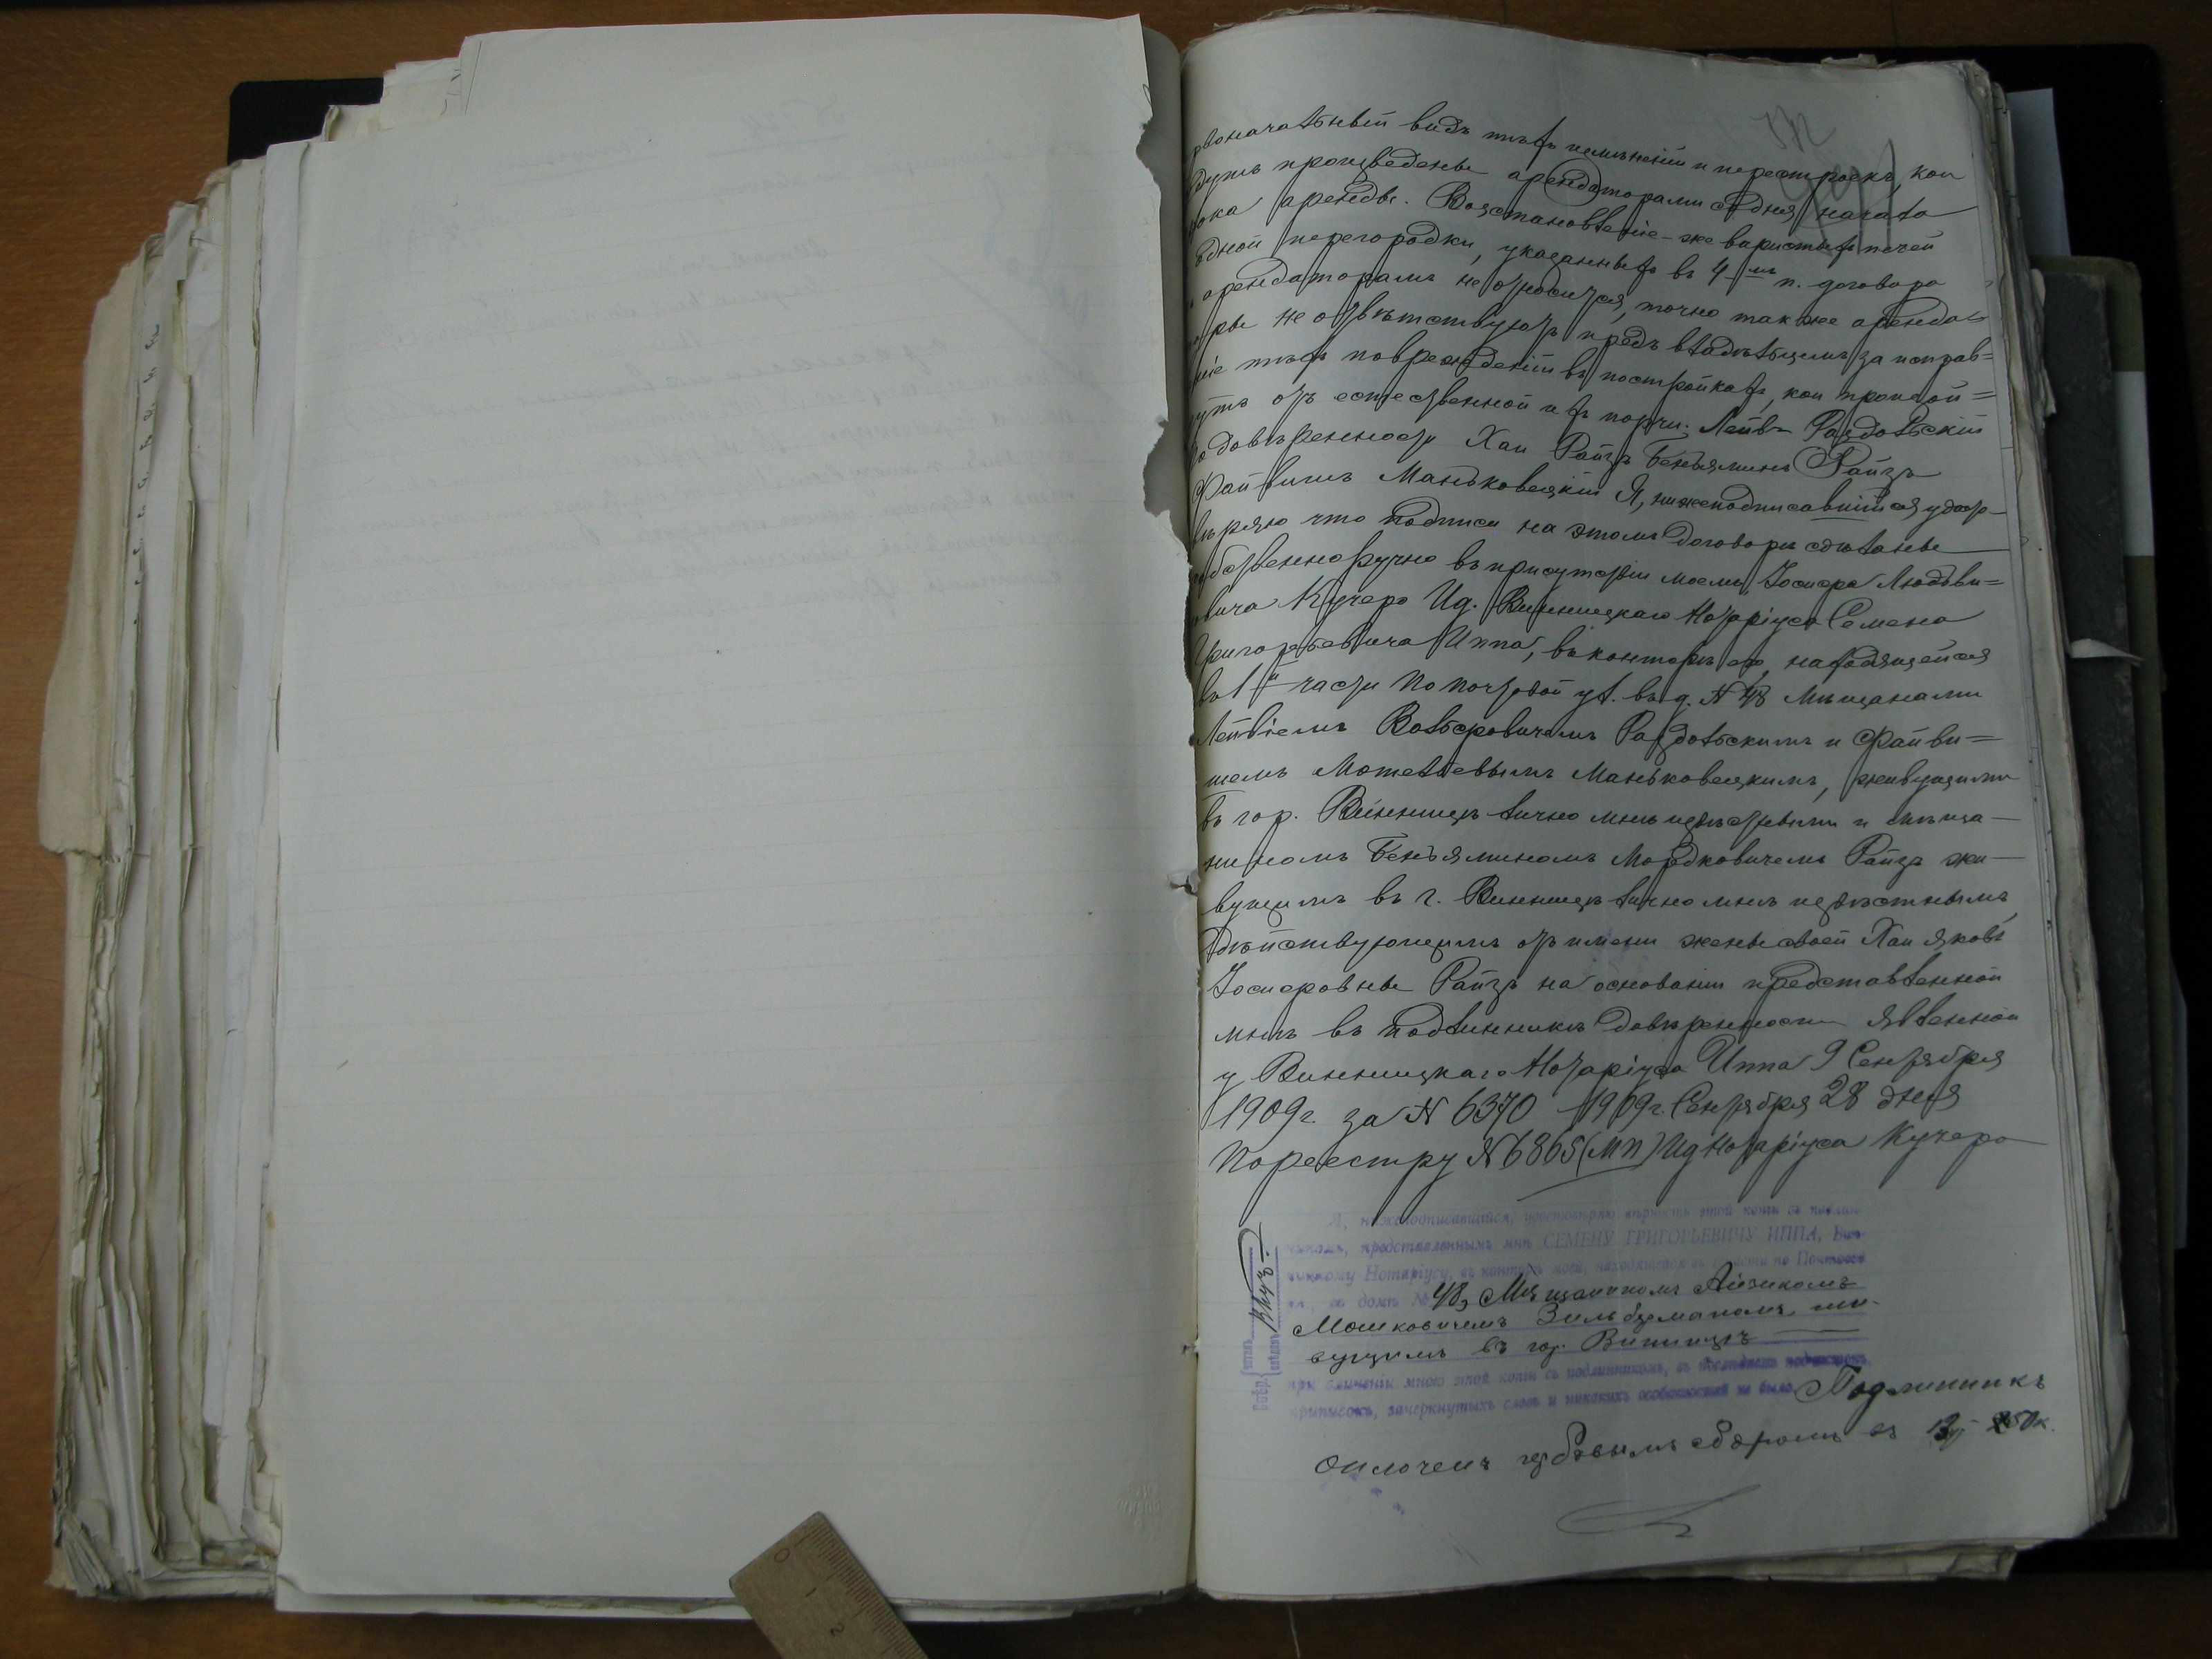 рвоначальный видъ тѣхъ измѣненій и перестроекъ, кои
дутъ произведены арендаторами со дня начала
рока аренды. Возстановленіе-же варистыхъ печей
одной перегородки, указанныхъ въ 4мъ п. договора
арендаторамъ не относится, точно также аренда=
оры не отвѣтствуютъ предъ владѣльцемъ за исправ=
ніе тѣхъ поврежденій въ постройкахъ, кои произой=
утъ отъ естественной ихъ порчи. Лейвъ Раздольскій
о довѣренности Хаи Райзъ Беньяминъ Райзъ
Файвишъ Маньковецкій Я, нижеподписавшійся удос-
вѣряю что подписи на этомъ договорѣ сдѣланы
обственноручно въ присутствіи моемъ, Іосифа Людви=
овича Кучера Ид. Винницкаго Нотаріуса Семена
Григорьевича Иппа, въ конторѣ его, находящейся
въ 1й части по почтовой ул. въ д. № 48 мѣщанами
Лейвіемъ Вольфовичемъ Раздольскимъ и Файви=
шемъ Мотелевымъ Маньковецкимъ, живущими
въ гор. Винницѣ лично мнѣ извѣстными и мѣща-
ниномъ Беньяминомъ Мордковичемъ Райзъ жи-
вущимъ въ г. Винницѣ лично мнѣ извѣстнымъ,
дѣйствующимъ отъ имени жены своей Хаи Яковы
Іосифовны Райзъ на основаніи представленной
мнѣ въ подлинникѣ довѣренности явленной
у Винницкаго Нотаріуса Иппа 9 Сентября
1909г. за № 6370 1909г. Сентября 28 дня
По реестру № 6865 (МП) Ид Нотаріуса Кучера
Я, нижеподписавшійся, удостовѣряю вѣрность этой копіи съ подлин-
никомъ, представленнымъ мнѣ СЕМЕНУ ГРИГОРЬЕВИЧУ ИППА, Вин-
ницкому Нотаріусу, въ конторѣ моей, находящейся въ части по Почтовой
ул., въ домѣ № 48, Мѣщаниномъ Айзикомъ
Мошковичемъ Зильберманомъ, жи-
вущимъ въ гор. Винницѣ
при сличеніи мною этой копіи съ подлинникомъ, въ послѣднемъ подчистокъ,
приписокъ, зачеркнутыхъ словъ и никакихъ особенностей не было. Подлинникъ
оплоченъ гербовымъ сборомъ въ